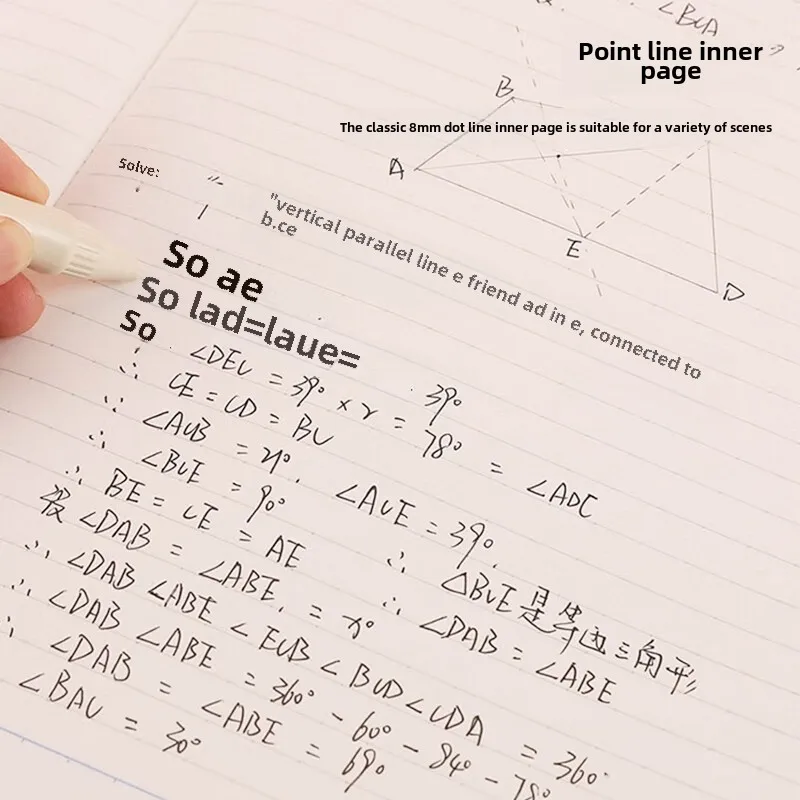 ∠BCA
Point line inner
page
B
The classic 8mm dot line inner page is suitable for a variety of scenes
A
Solve:
"vertical parallel line e friend ad in e, connected to
b.ce
E
D
So ae
So lad=laue=
39°
So
∠DEC = 39° × 2 = 78° = ∠ADC
∴ CE = CD = BC
∠ACB = 21°. ∠ACE = 39°.
∴ ∠BCE = 90°
∴ △BCE是等边三角形
∴ BE = CE = AE
∴ ∠DAB = ∠ABE
设∠DAB = ∠ABE. = x°
∴ ∠DAB ∠ABE < ECB < BCD < CDA = 360°
∴ ∠DAB ∠ABE = 360° - 60° - 84° - 78°
∴ ∠DAB = ∠ABE = 69°
∠BAC = 30°